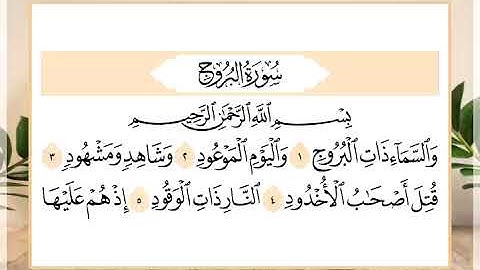 سُورَةُ الْبُرُوجِ
بِسْمِ اللَّهِ الرَّحْمَٰنِ الرَّحِيمِ
وَالسَّمَاءِ ذَاتِ الْبُرُوجِ ١ وَالْيَوْمِ الْمَوْعُودِ ٢ وَشَاهِدٍ وَمَشْهُودٍ ٣
قُتِلَ أَصْحَابُ الْأُخْدُودِ ٤ النَّارِ ذَاتِ الْوَقُودِ ٥ إِذْ هُمْ عَلَيْهَا